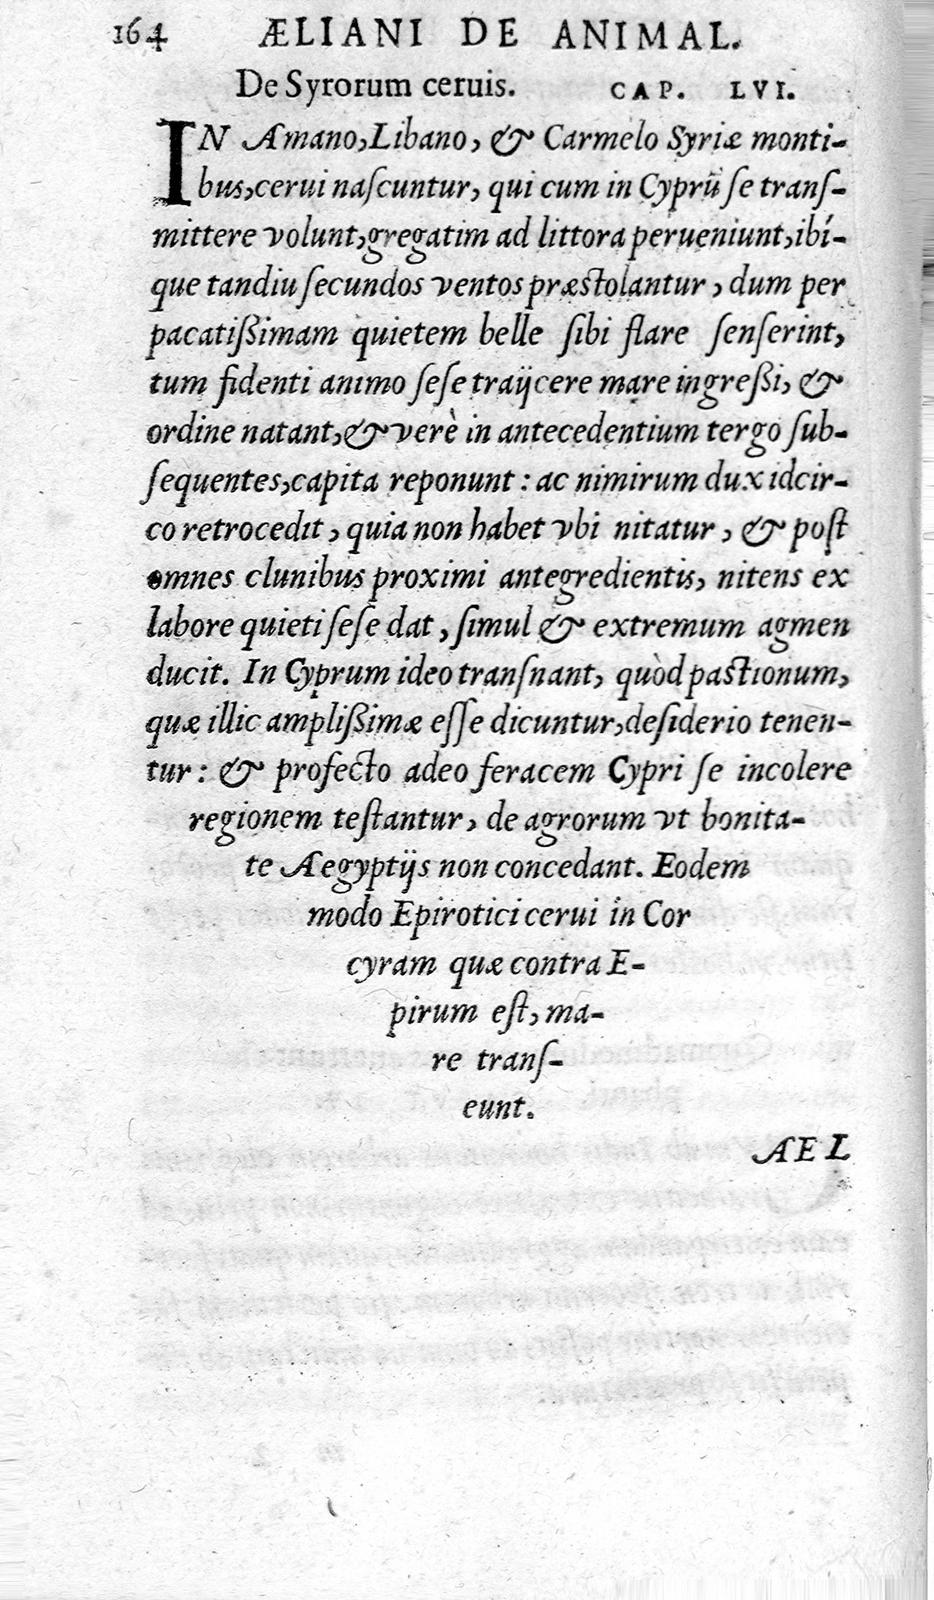 164 ÆLIANI DE ANIMAL.
De Syrorum ceruis. CAP. LVI.
IN Amano, Libano, & Carmelo Syriæ monti-
bus, cerui naſcuntur, qui cum in Cyprū ſe tranſ-
mittere volunt, gregatim ad littora perueniunt, ibí-
que tandiu ſecundos ventos præſtolantur, dum per
pacatißimam quietem belle ſibi flare ſenſerint,
tum fidenti animo ſeſe traijcere mare ingreßi, &
ordine natant, & verè in antecedentium tergo ſub-
ſequentes, capita reponunt: ac nimirum dux idcir-
co retrocedit, quia non habet vbi nitatur, & poſt
omnes clunibus proximi antegredientis, nitens ex
labore quieti ſeſe dat, ſimul & extremum agmen
ducit. In Cyprum ideo tranſnant, quòd paſtionum,
quæ illic amplißimæ eſſe dicuntur, deſiderio tenen-
tur: & profecto adeo feracem Cypri ſe incolere
regionem teſtantur, de agrorum vt bonita-
te Aegyptijs non concedant. Eodem
modo Epirotici cerui in Cor
cyram quæ contra E-
pirum eſt, ma-
re tranſ-
eunt.
AEL